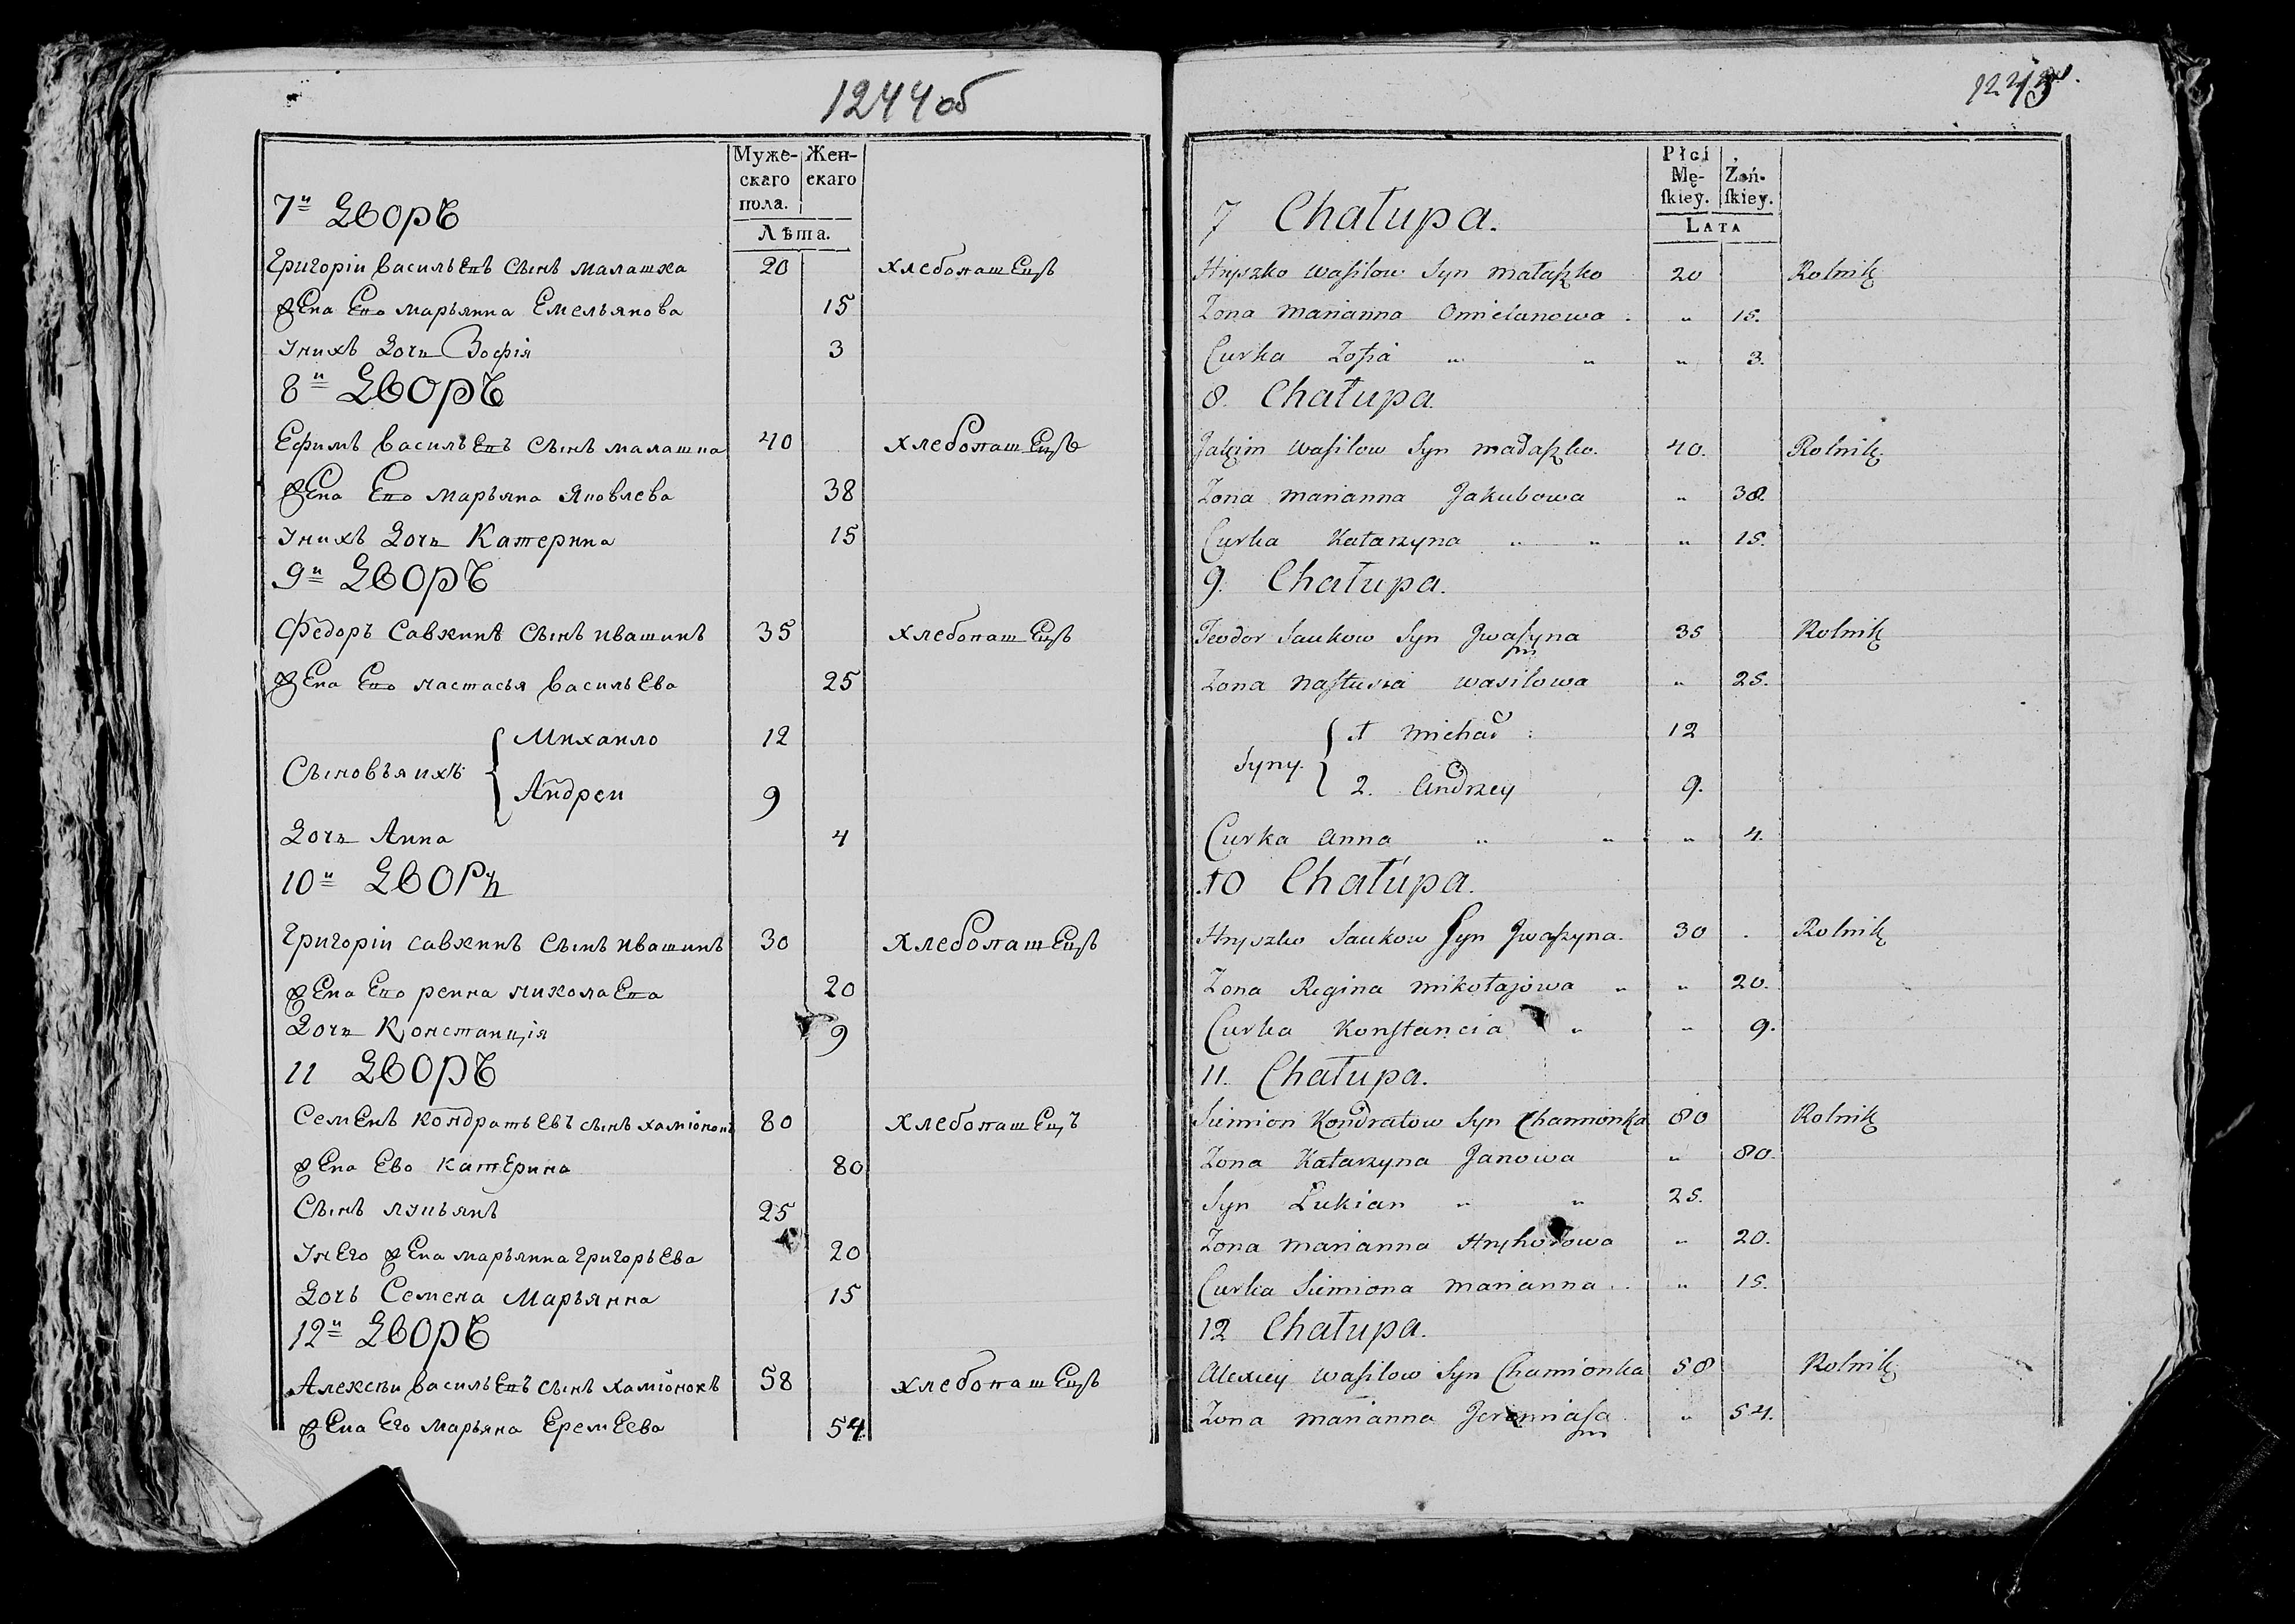 1244об
Муже- Жен-
скаго скаго
пола.
Лѣта.
7й Дворъ
Григоріи васильевъ сынъ малашка 20 хлебопашецъ
жена ево марьянна Емельянова 15
Iнихъ дочь Зофія 3
8й Дворъ
Ефимъ васильевъ сынъ малашка 40 хлебопашецъ
жена ево марьяна Яковлева 38
Iнихъ дочь Катерина 15
9й Дворъ
Федоръ Савкинъ сынъ ивашинъ 35 хлебопашецъ
жена ево настасья васильева 25
Сыновья ихъ { Михаило 12
Андреи 9
Дочь Анна 4
10й Дворъ
Григоріи савкинъ сынъ ивашинъ 30 Хлебопашецъ
жена ево реина николаева 20
Дочь Констанція 9
11 Дворъ
Семенъ кондратьевъ сынъ хаміонокъ 80 хлебопашецъ
жена Ево катерина 80
Сынъ лукьянъ 25
Iнего жена марьянна григорьева 20
Дочь Семена Марьянна 15
12й Дворъ
Алексѣи васильевъ сынъ хаміонокъ 58 хлебопашецъ
жена Его марьяна Еремеева 54
Płci
Mę- Żeń-
ſkiey. ſkiey.
LATA
7 Chałupa.
Hryszko Waſilow Syn małaſzko 20 Rolnik
Zona marianna Omielanowa : „ 15.
Curka Zofia „ „ „ 3.
8. Chałupa.
Jakim Waſilow Syn małaſzko. 40. Rolnik
Zona marianna Jakubowa „ 38.
Curka Katarzyna „ „ „ 15.
9. Chałupa.
Teodor Saukow Syn Jwaſzyna 35 Rolnik
Zona Naſtusia wasilowa „ 25.
Syny. { 1 michał : 12
2. Andrzey 9.
Curka Anna „ „ „ 4.
10 Chałupa.
Hryszko Saukow Syn Jwaſzyna. 30 . Rolnik
Zona Regina mikołajowa „ „ 20.
Curka Konſtancia „ „ 9.
11. Chałupa.
Siemion Kondratow Syn Chamionka 80 Rolnik
Zona Katarzyna Janowa „ 80.
Syn Łukian „ „ 25.
Zona marianna Hryhorowa „ 20.
Curka Siemiona marianna .. „ 15.
12 Chałupa.
Alexiey waſilow Syn Chamionka 58 Rolnik
Zona marianna Jeremiaſa „ 54.